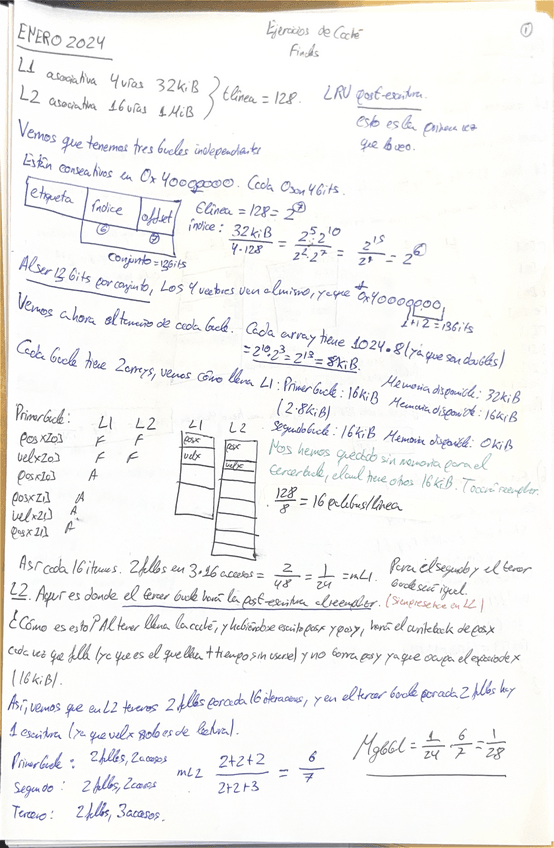 Ejercicios de Caché
Finales
1
ENERO 2024
L1 asociativa 4 vías 32KiB
L2 asociativa 16 vías 1 MiB
tlínea = 128.
LRU post-escritura.
esto es la primera vez
que lo veo.
Vemos que tenemos tres bucles independientes
Están consecutivos en 0x40000000. Cada 0 son 4 bits.
etiqueta índice offset
6 7
conjunto = 13 bits
Elínea = 128 = 2^7
índice: 32KiB / 4·128 = 2^5·2^10 / 2^2·2^7 = 2^15 / 2^9 = 2^6
Al ser 13 bits por conjunto, los 4 vectores van al mismo, ya que 0x40000000,
1+12 = 13 bits
Vemos ahora el tamaño de cada bucle. Cada array tiene 1024·8 (ya que son doubles)
= 2^10·2^3 = 2^13 = 8KiB.
Cada bucle tiene 2 arrays, vemos cómo llena L1: Primer bucle: 16KiB Memoria disponible: 32KiB
(2·8KiB) Memoria disponible: 16KiB
Segundo bucle: 16KiB Memoria disponible: 0KiB
Nos hemos quedado sin memoria para el
tercer bucle, el cual tiene otros 16KiB. Tocará reemplazar.
128/8 = 16 palabras/línea
Primer bucle: L1 L2
posx[0] F F
velx[0] F F
posx[0] A
posx[1] A
velx[1] A
posx[1] A
L1 L2
posx posx
velx velx
Así cada 16 iteras. 2 fallos en 3·16 accesos = 2/48 = 1/24 = mL1
Para el segundo y el tercer
bucle será igual.
L2. Aquí es donde el tercer bucle hará la post-escritura al reemplazar. (siempre se hace en L1)
¿Cómo es esto? Al tener llena la caché, y habiéndose escrito posx y posy, hará el writeback de posx
cada vez que falla (ya que es el que lleva + tiempo sin usarse) y no borra posy ya que ocupa el espacio de x
(16KiB).
Así, vemos que en L2 tenemos 2 fallos por cada 16 iteraciones, y en el tercer bucle por cada 2 fallos hay
1 escritura (ya que velx solo es de lectura).
Primer bucle: 2 fallos, 2 accesos
Segundo: 2 fallos, 2 accesos
Tercero: 2 fallos, 3 accesos.
mL2 2+2+2 / 2+2+3 = 6/7
Mglobal = 1/24 · 6/7 = 1/28